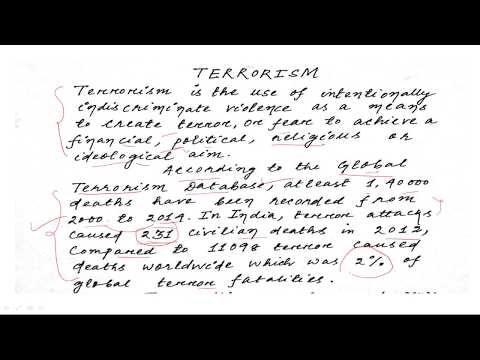 TERRORISM
Terrorism is the use of intentionally
indiscriminate violence as a means
to create terror, or fear to achieve a
financial, political, religious or
ideological aim.
According to the Global
Terrorism Database, atleast 1,40000
deaths have been recorded from
2000 to 2014. In India, terror attacks
caused 231 civilian deaths in 2012,
Compared to 11098 terror caused
deaths worldwide which was 2% of
global terror fatalities.